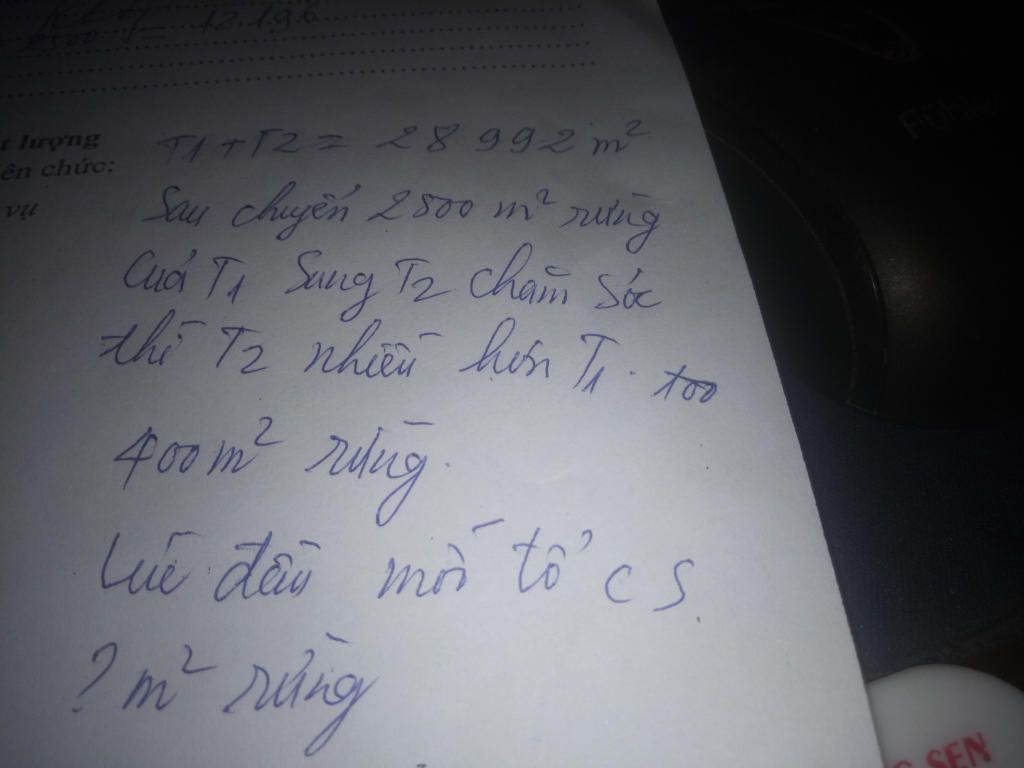 = 12.196
t lượng
ên chức:
vụ
T1 + T2 = 28 992 m²
Sau chuyển 2500 m² rừng
Của T1 Sang T2 chăm sóc
thì T2 nhiều hơn T1.
400 m² rừng.
Lúc đầu mỗi tổ CS
? m² rừng
SEN